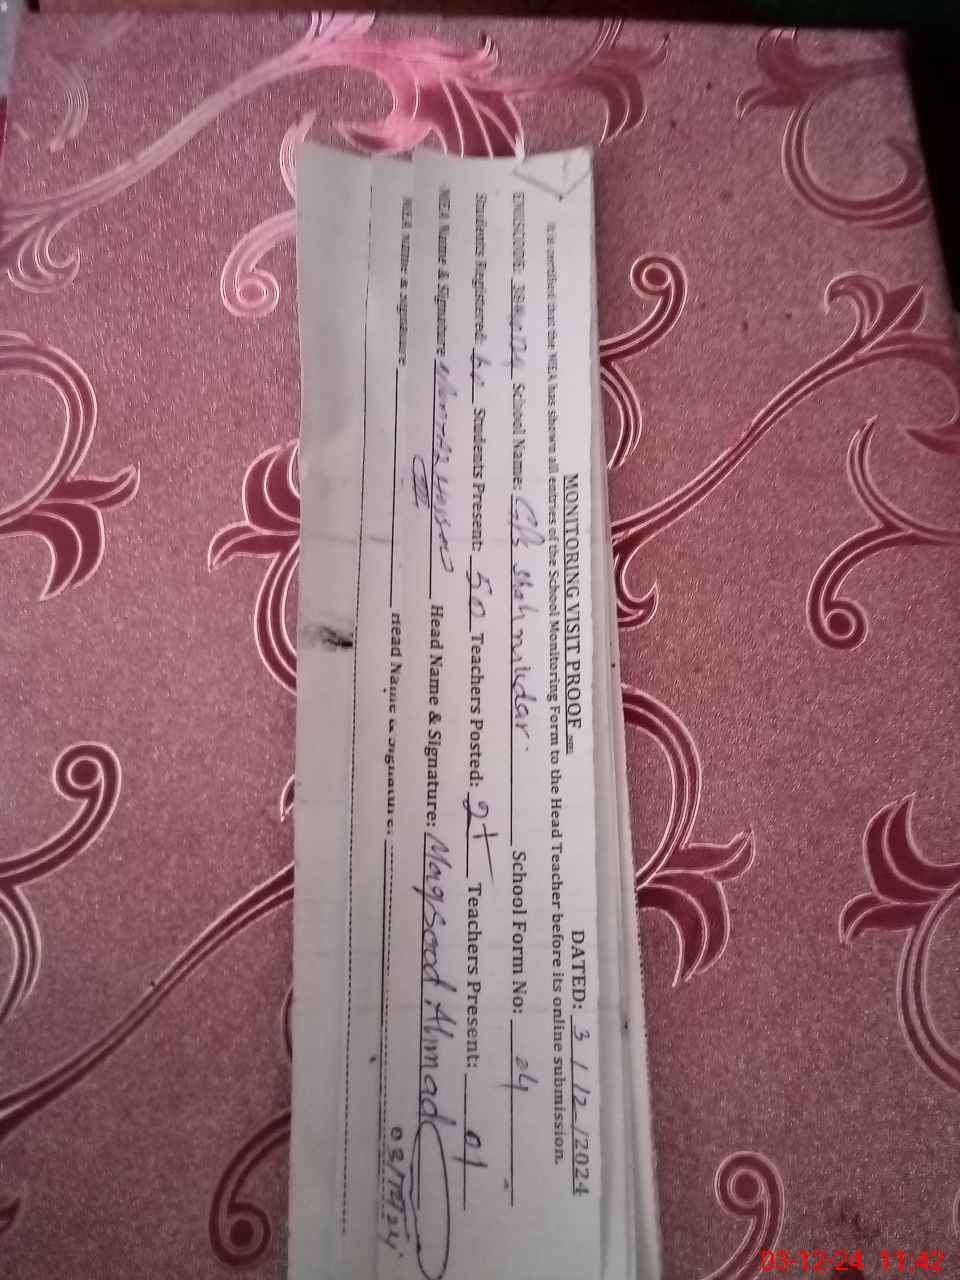 MONITORING VISIT PROOF DATED: 3/12/2024
It is certified that the MEA has shown all entries of the School Monitoring Form to the Head Teacher before its online submission.
EMISCODE: School Name: School Form No: 24
Students Registered: Students Present: 50 Teachers Posted: 2+ Teachers Present: 01
MEA Name & Signature Head Name & Signature: Maqsood Ahmad
MEA Name & Signature Head Name & Signature:
03-12-24 11:42